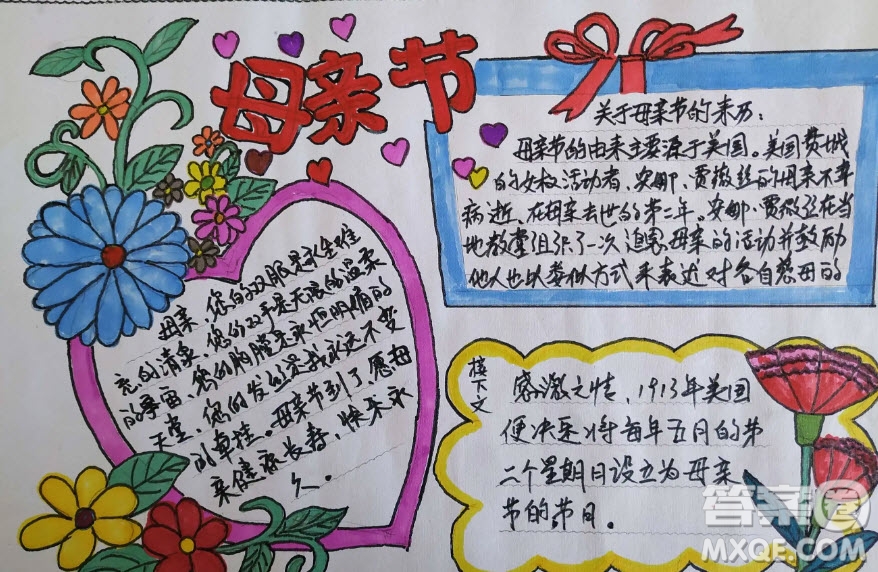 母亲节
关于母亲节的来历：
母亲节的由来主要源于美国。美国费城
的女权活动者、安娜、贾薇丝的母亲不幸
病逝、在母亲去世的第二年。安娜·贾薇丝在当
地教堂组织了一次追思母亲的活动并鼓励
他人也以类似方式来表达对各自慈母的
母亲、您的双眼是永生难
忘的清泉、您的双手是无限的温柔
的宇宙、您的胸膛是永恒眼睛的
天堂、您的发丝是我永远不变
的牵挂。母亲节到了、愿母
亲健康长寿、快乐永
久。
接下文
感激之情、1913年美国
便决定将每年五月的第
二个星期日设立为母亲
节的节日。
答案圈
MXQE.COM